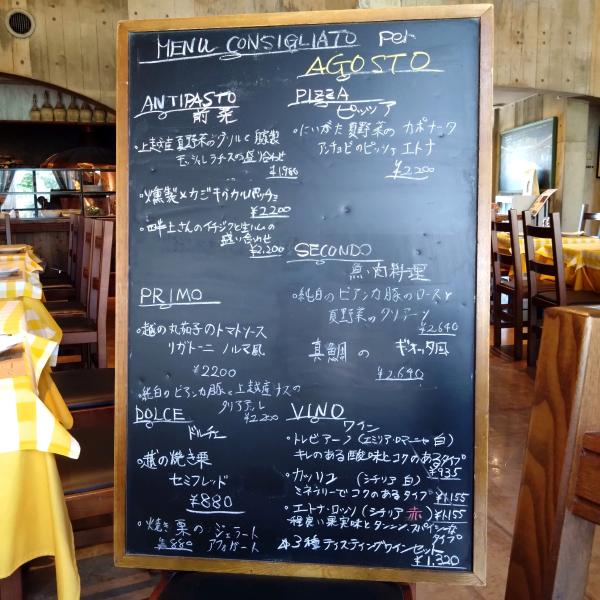 MENU CONSIGLIATO per
AGOSTO
ANTIPASTO
前菜
・上越産夏野菜のグリルと燻製
モッツァレラチーズの盛り合わせ
¥1,980
・燻製メカジキのカルパッチョ
¥2,200
・四半上さんのイチジクと生ハムの
盛り合わせ
¥2,200
PIZZA
ピッツァ
・にいがた夏野菜のカポナータ
アンチョビのピッツァ エトナ
¥2,200
SECONDO
魚・肉料理
・純白のビアンカ豚のロースと
夏野菜のグリアーノ
¥2,640
真鯛の ギオッタ風
¥2,640
PRIMO
・越の丸茄子のトマトソース
リガトーニ ノルマ風
¥2200
・純白のビアンカ豚と上越産ナスの
¥2,200
DOLCE
ドルチェ
・越の焼き栗
セミフレッド
¥880
・焼き栗のジェラート
アフォガート
¥880
VINO
ワイン
・トレビアーノ (エミリア・ロマーニャ 白)
キレのある酸味とコクのあるタイプ
¥935
・カッリコ (シチリア 白)
ミネラリーでコクのあるタイプ ¥1,155
・エトナ・ロッソ (シチリア 赤) ¥1,155
程良い果実味とタンニン、スパイシーな
タイプ
3種テイスティングワインセット
¥1,320